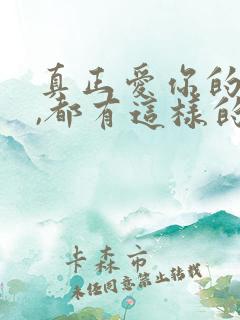 真正愛你的
,都有這樣的
卡森市
未经同意禁止转载